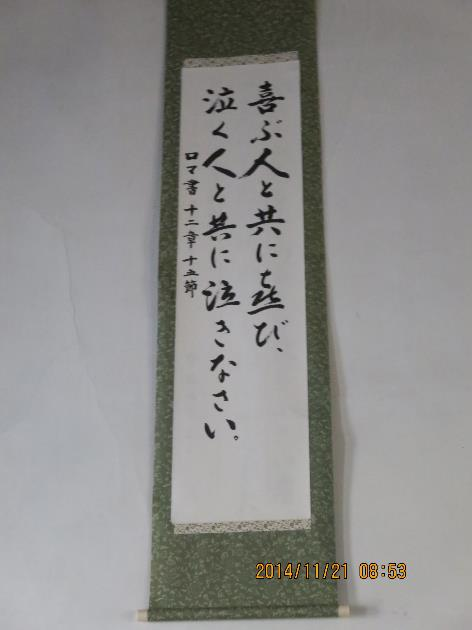 喜ぶ人と共に喜び、
泣く人と共に泣きなさい。
ロマ書 十二章 十五節
2014/11/21 08:53